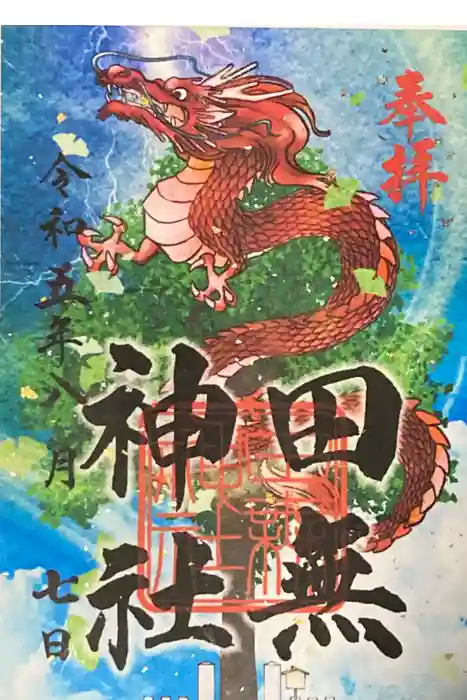 奉拝
田無
神社
令和五年八月
七日